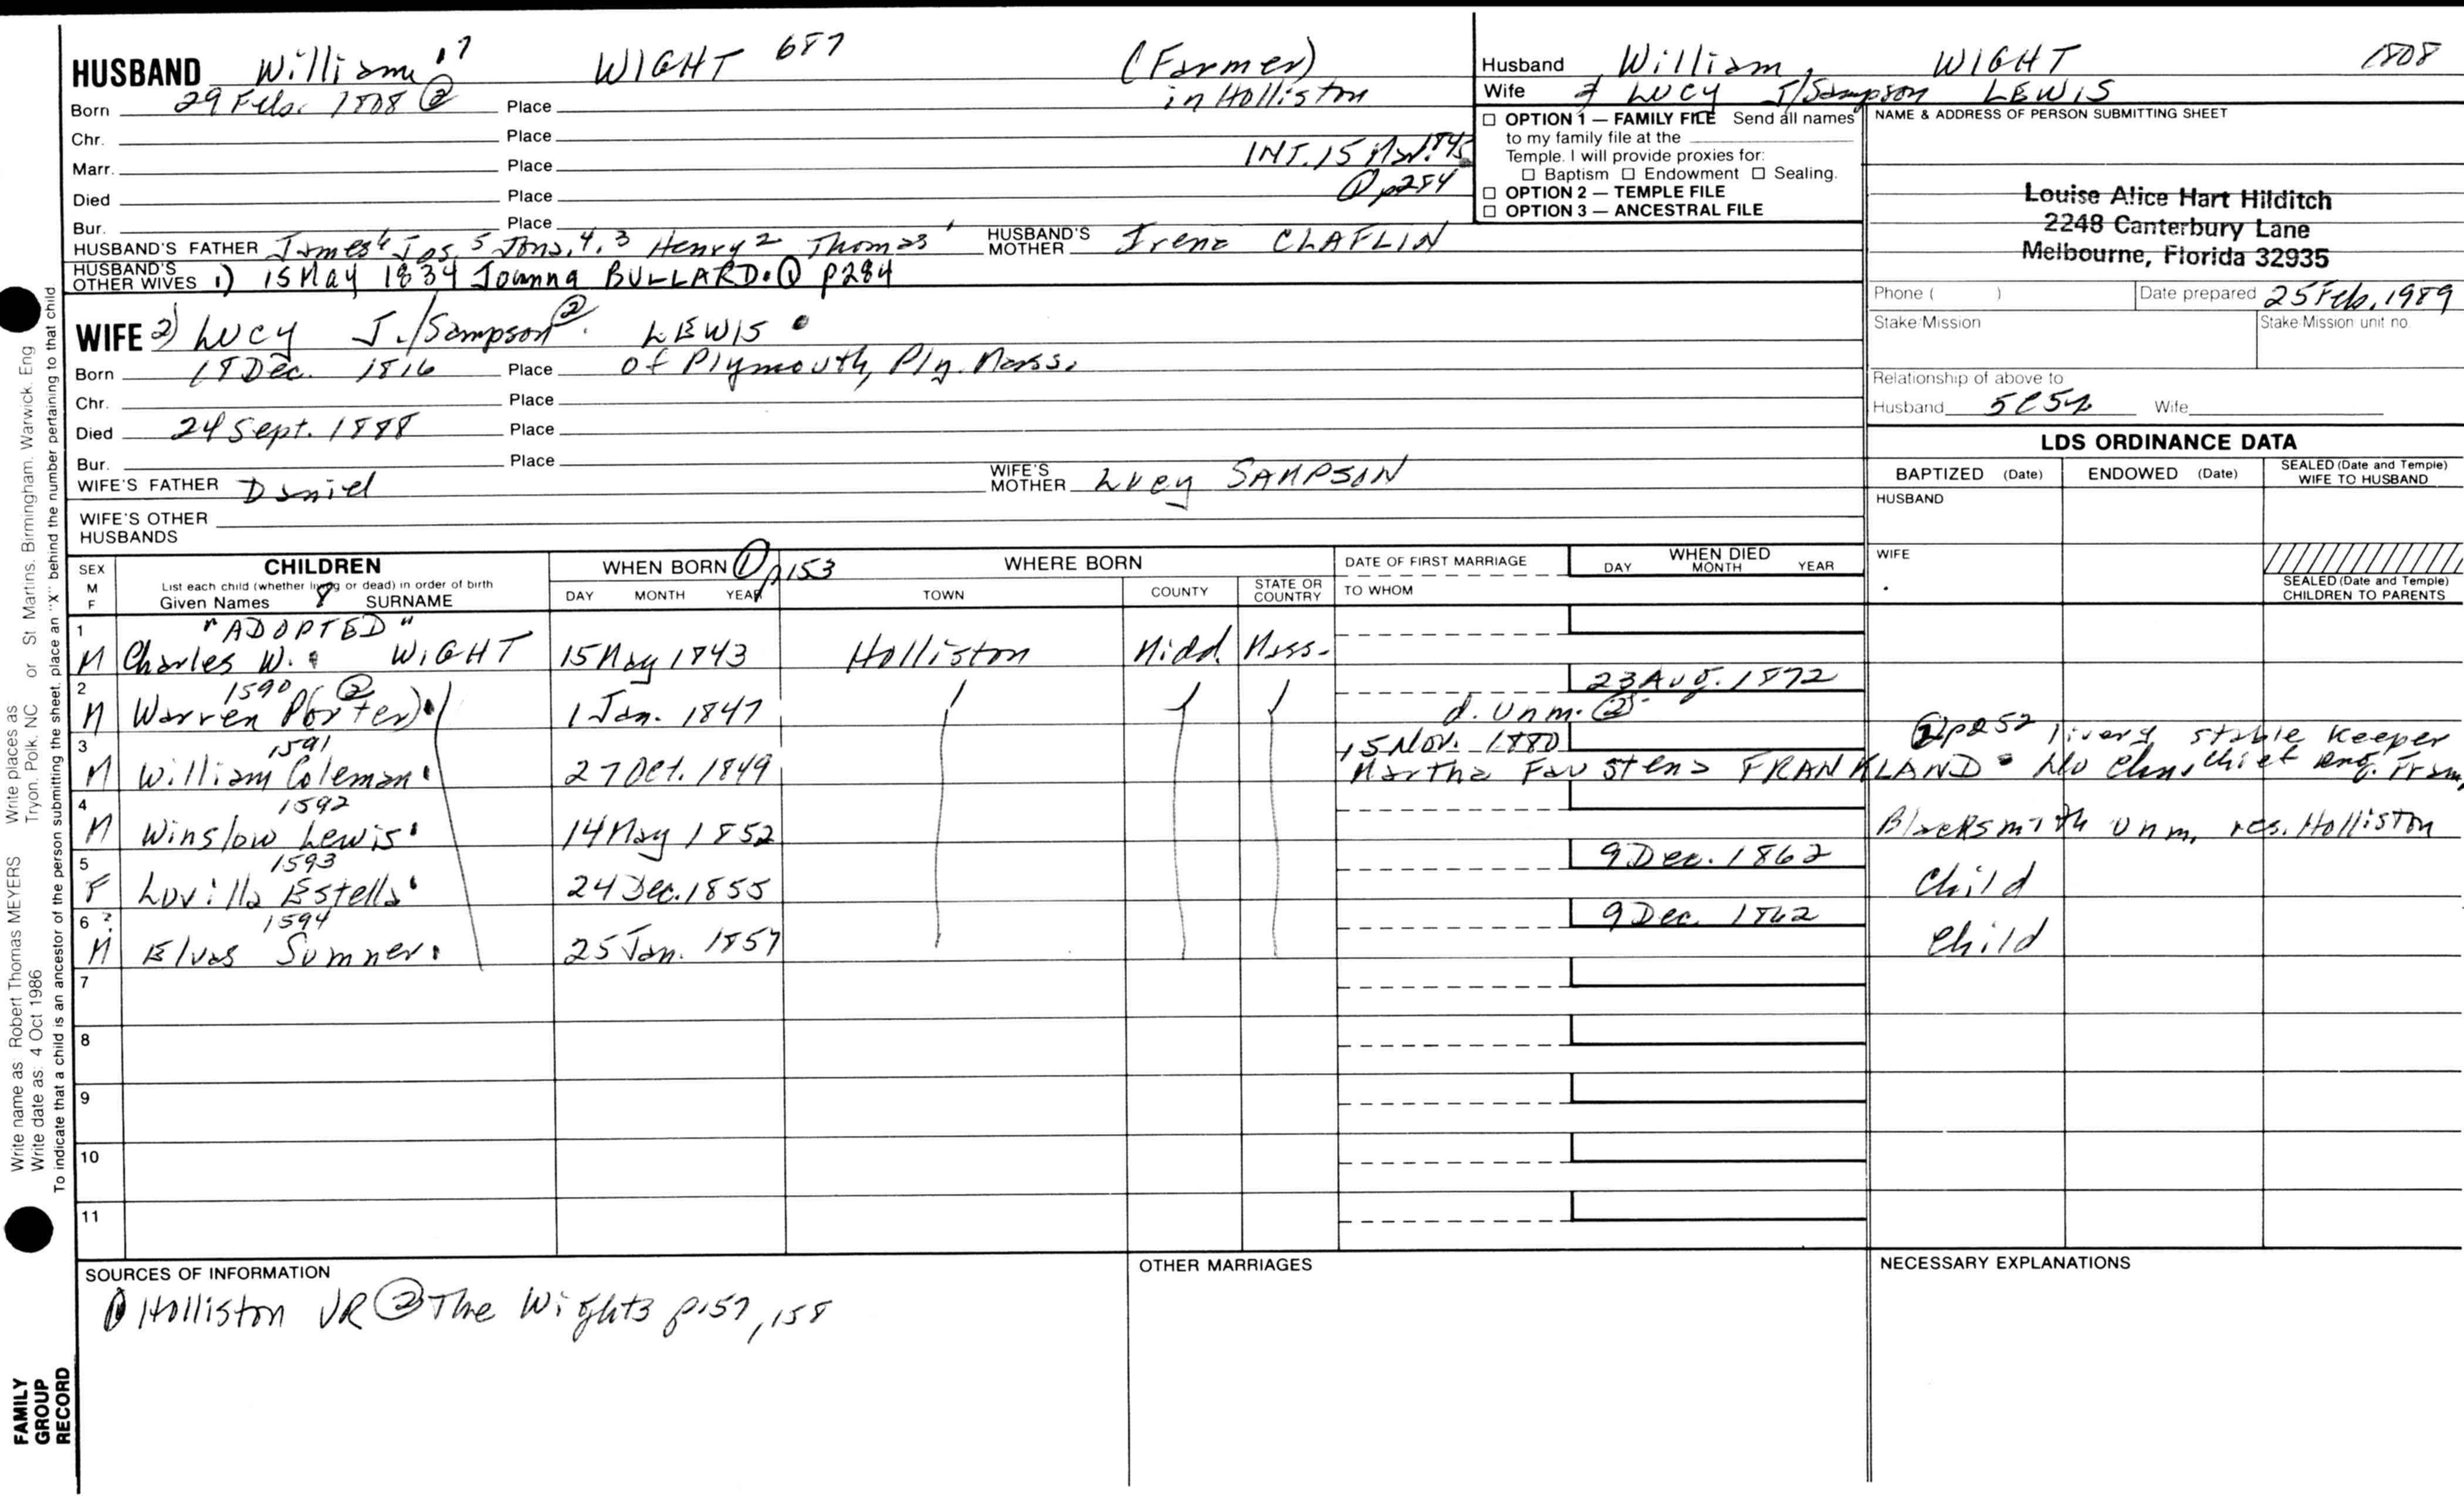 HUSBAND William 7 WIGHT 687 (Farmer) in Holliston
Born 29 Feb. 1808 ② Place
Chr. Place
Marr. Place INT. 15 1845
Died Place ① p284
Bur. Place
HUSBAND'S FATHER James 6 Jos. 5 Jona. 4, 3 Henry 2 Thomas 1 HUSBAND'S MOTHER Irena CLAFLIN
HUSBAND'S OTHER WIVES 1) 15 May 1834 Joanna BULLARD. ① p284
WIFE 2) Lucy J./Sampson ② LEWIS
Born 18 Dec. 1816 Place of Plymouth, Ply. Mass.
Chr. Place
Died 24 Sept. 1888 Place
Bur. Place
WIFE'S FATHER Daniel WIFE'S MOTHER Lucy SAMPSON
WIFE'S OTHER HUSBANDS
Husband William WIGHT 1808
Wife 2 LUCY J/Sampson LEWIS
☐ OPTION 1 — FAMILY FILE Send all names
to my family file at the
Temple. I will provide proxies for:
☐ Baptism ☐ Endowment ☐ Sealing.
☐ OPTION 2 — TEMPLE FILE
☐ OPTION 3 — ANCESTRAL FILE
NAME & ADDRESS OF PERSON SUBMITTING SHEET
Louise Alice Hart Hilditch
2248 Canterbury Lane
Melbourne, Florida 32935
Phone ( ) Date prepared 25 Feb, 1989
Stake/Mission Stake/Mission unit no.
Relationship of above to
Husband Wife
LDS ORDINANCE DATA
BAPTIZED (Date) ENDOWED (Date) SEALED (Date and Temple) WIFE TO HUSBAND
HUSBAND
WIFE
SEALED (Date and Temple) CHILDREN TO PARENTS
SEX M F CHILDREN List each child (whether living or dead) in order of birth Given Names 8 SURNAME
WHEN BORN ① p153 DAY MONTH YEAR
WHERE BORN TOWN COUNTY STATE OR COUNTRY
DATE OF FIRST MARRIAGE TO WHOM
WHEN DIED DAY MONTH YEAR
1 "ADOPTED"
M Charles W. WIGHT 15 May 1843 Holliston Midd. Mass.
2 1590 ② 23 Aug. 1872
M Warren P(orter) 1 Jan. 1847 d. unm. ②
3 1591 15 Nov. 1880 ② p252 livery stable keeper
M William Coleman 27 Oct. 1849 Martha Faustena FRANKLAND No chn. chief eng. Fram.
4 1592
M Winslow Lewis 14 May 1852 Blacksmith unm. res. Holliston
5 1593 9 Dec. 1862
F Luvilla Estella 24 Dec. 1855 Child
6 ? 1594 9 Dec. 1862
M Elvas Sumner 25 Jan. 1857 Child
7
8
9
10
11
SOURCES OF INFORMATION
① Holliston VR ② The Wights p157, 158
OTHER MARRIAGES
NECESSARY EXPLANATIONS
Write name as: Robert Thomas MEYERS Write places as St. Martins, Birmingham, Warwick, Eng
Write date as: 4 Oct 1986 Tryon, Polk, NC or
To indicate that a child is an ancestor of the person submitting the sheet, place an "X" behind the number pertaining to that child
FAMILY
GROUP
RECORD